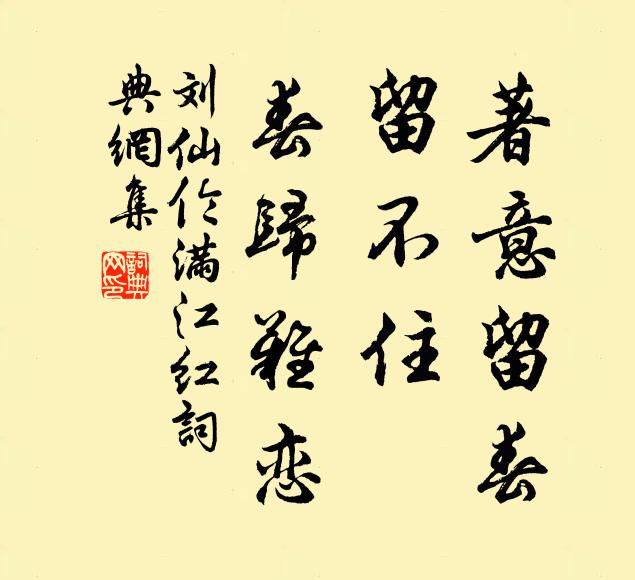 著意留春
留不住
春歸難恋
刘仙伦满江红詞
典網集
詞典
网印